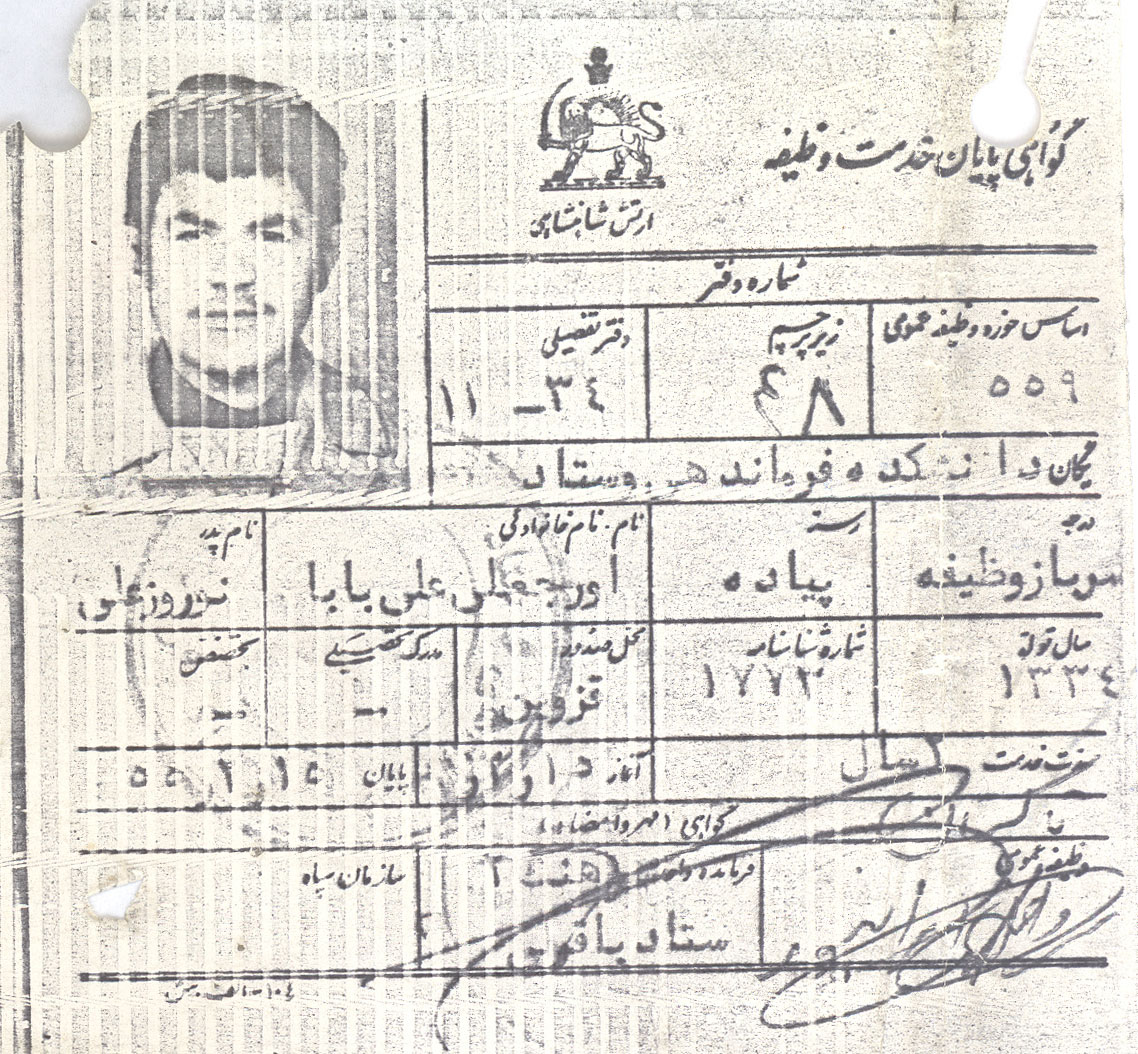 گواهی پایان خدمت وظیفه
ارتش شاهنشاهی
شماره دفتر
اساس حوزه وظیفه عمومی
زیر پرچم
دفتر تفصیلی
۵۵۹
۴۸
۳٤ - ۱۱
یگان دانشکده فرماندهی و ستاد
درجه
رسته
نام . نام خانوادگی
نام پدر
سرباز وظیفه
پیاده
علی بابا
نوروزعلی
سال تولد
شماره شناسنامه
محل صدور
مدرک تحصیلی
تخصص
۱۳۳٤
۱۷۷۳
قزوین
-
-
مدت خدمت
۲ سال
آغاز
پایان ۱۵ ۲ ۵۵
گواهی (مهر و امضاء)
وظیفه عمومی
فرمانده واحد
سازمان سپاه
ستاد